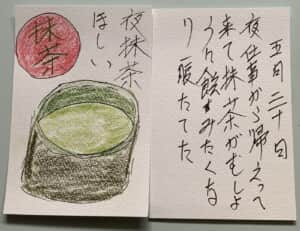 五月二十日
夜仕事から帰えって
来て抹茶がむしょ
うに飲みたくな
り一服たてた
夜抹茶
ほしい
抹茶